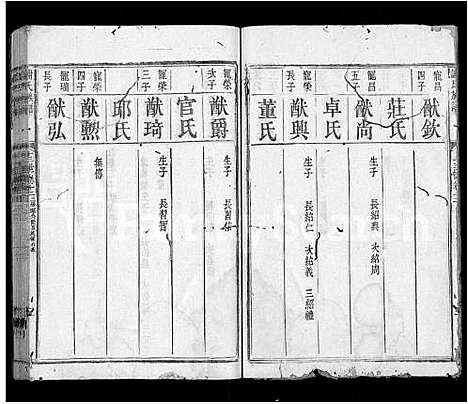 寵昌
四子
猷欽
莊氏
生子
長紹興 次紹周
寵昌
五子
猷尚
卓氏
生子
長紹仁 次紹義 三紹禮
寵榮
長子
猷興
董氏
寵榮
次子
猷爵
官氏
生子
長習佑
寵榮
三子
猷琦
邱氏
生子
長習智
寵榮
四子
猷勲
無傳
寵瑞
長子
猷弘